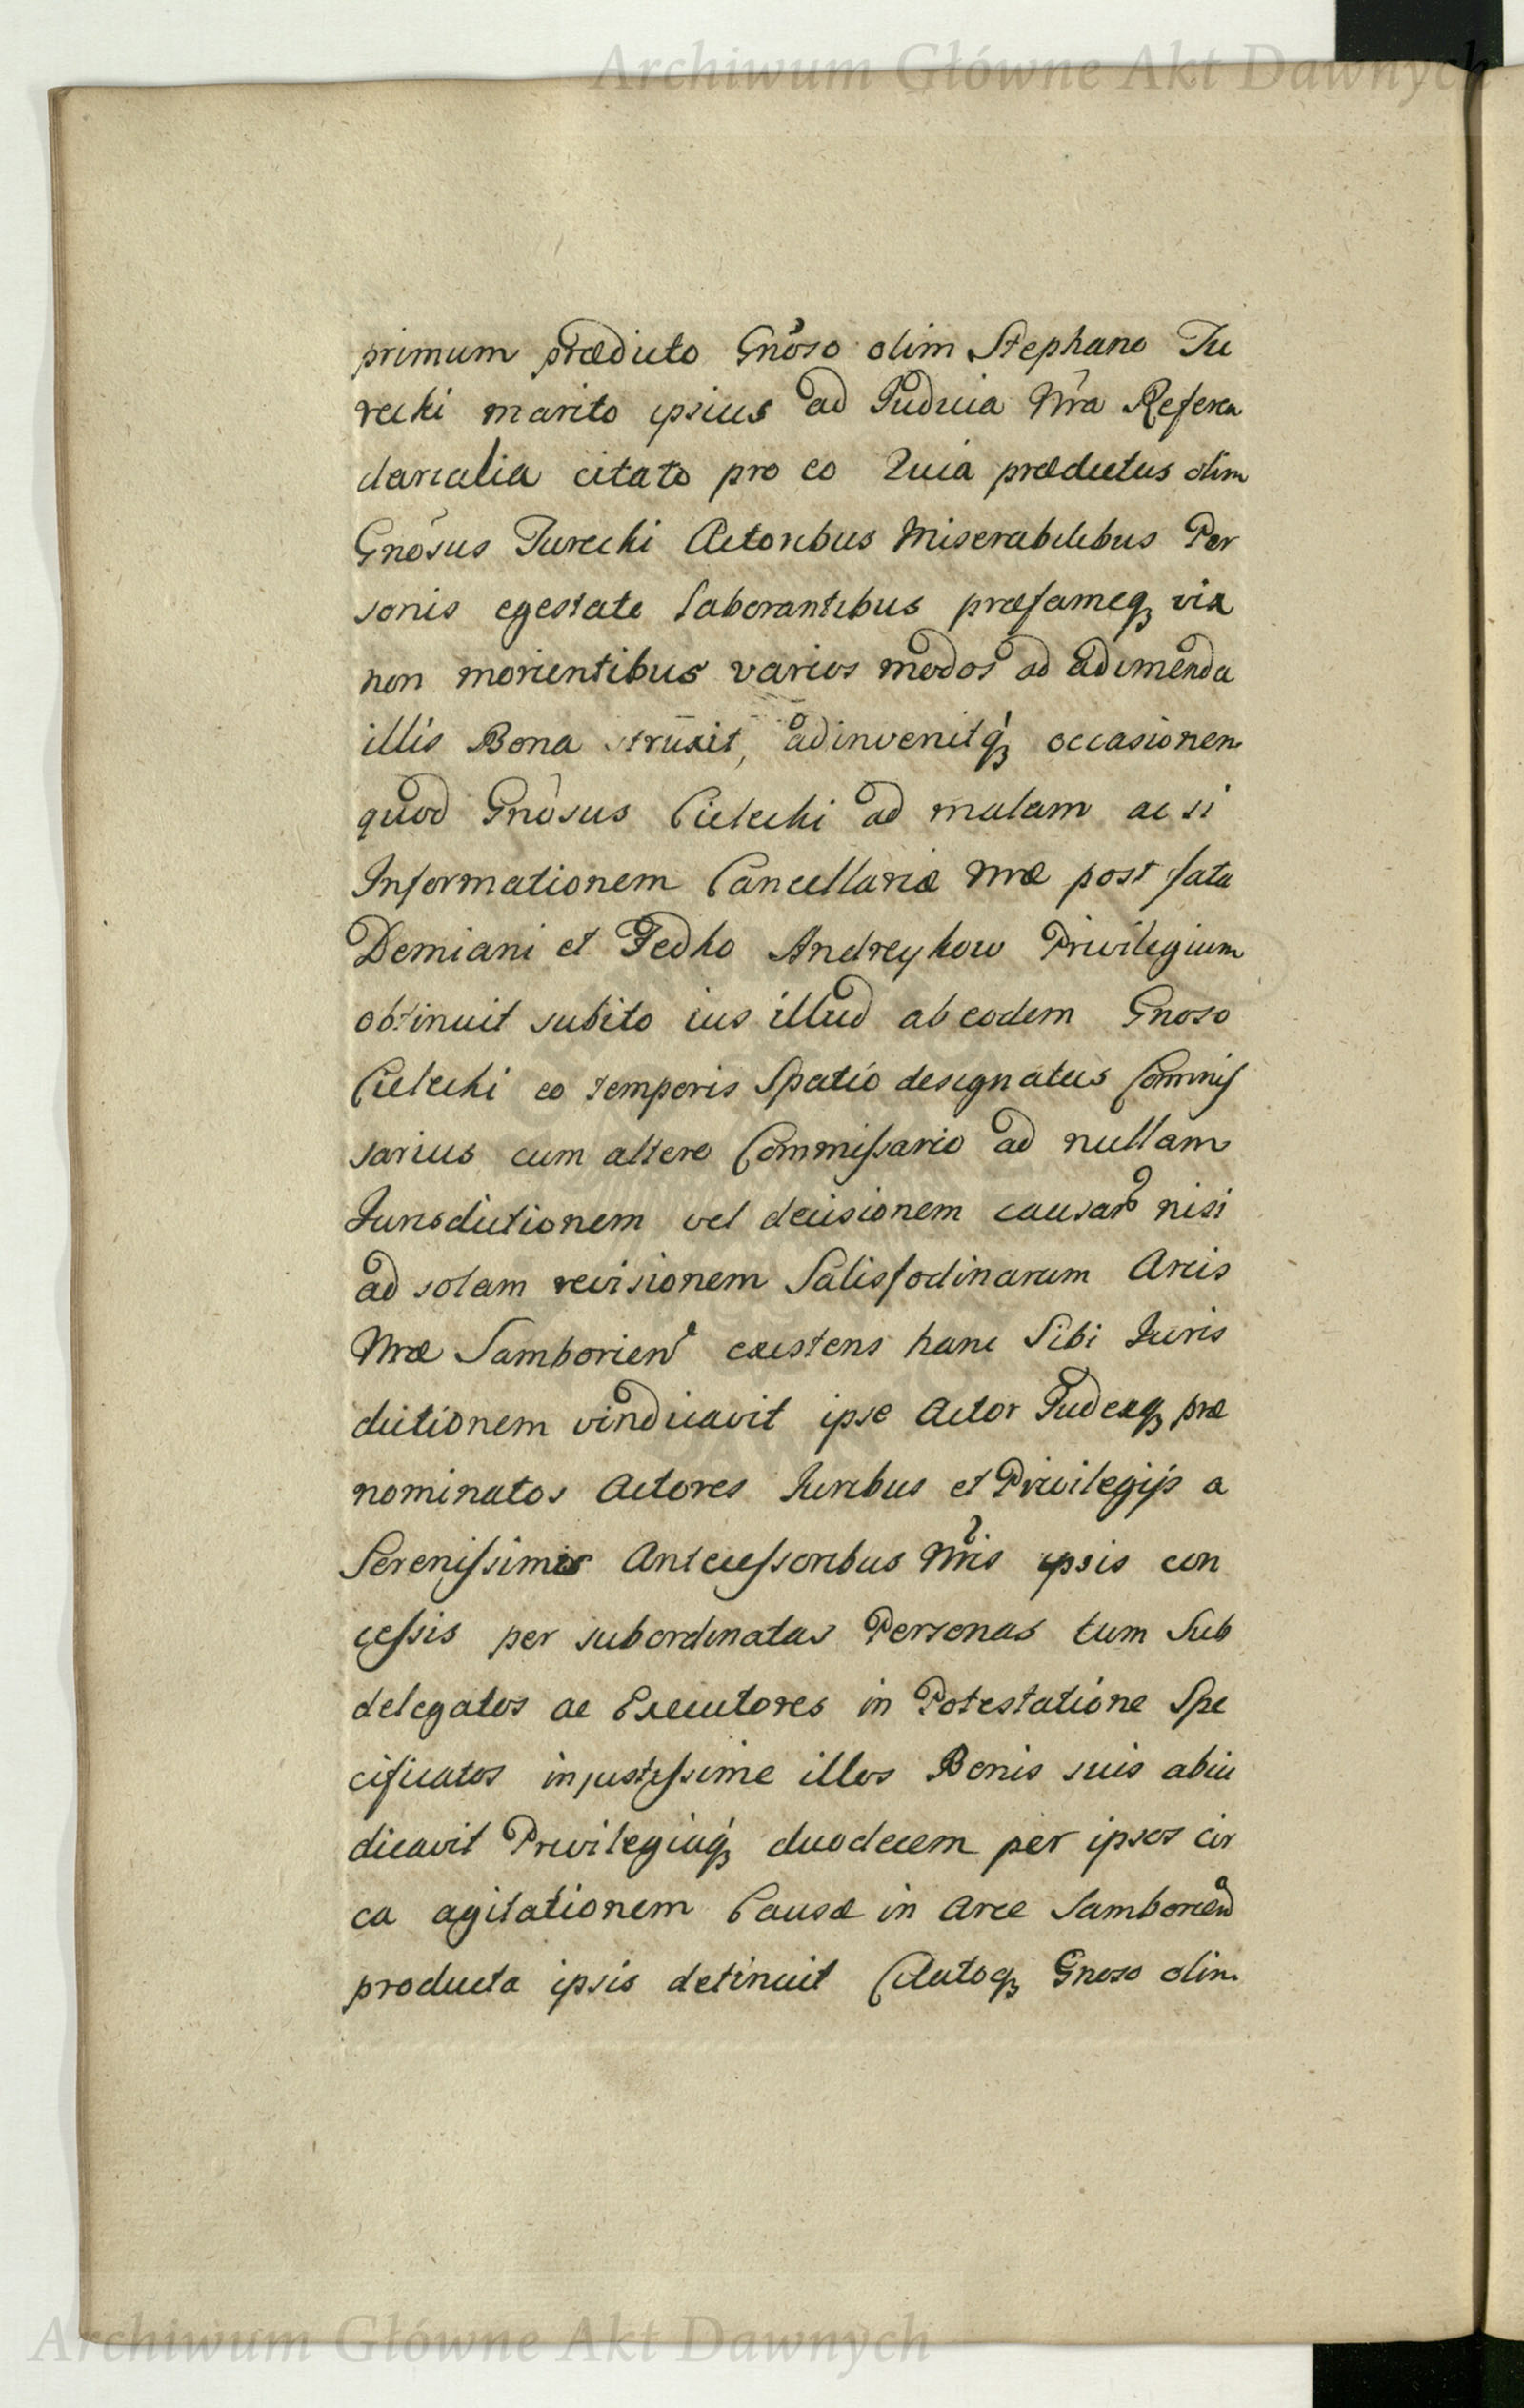 Archiwum Główne Akt Dawnych
primum prædicto Gnoso olim Stephano Tu
recki marito ipsius ad Judicia Nra Referen
darialia citato pro eo Quia prædictus olim
Gnosus Turecki Actoribus Miserabilibus Per
sonis egestate laborantibus præfameq vix
non morientibus varios modos ad adimenda
illis Bona struxit, adinvenitq occasionem
quod Gnosus Cielecki ad malam ac si
Informationem Cancellariæ Nræ post fata
Demiani et Fedko Andreykow Privilegium
obtinuit subito ius illud ab eodem Gnoso
Cielecki eo temporis Spatio designatus Commis
sarius cum altero Commissario ad nullam
Jurisdictionem vel decisionem causar nisi
ad solam revisionem Salisfodinarum Arcis
Nræ Samborien existens hanc Sibi Juris
dictionem vindicavit ipse Actor Judexq præ
nominatos Actores Juribus et Privilegijs a
Serenissimis Antecessoribus Nris ipsis con
cessis per subordinatas Personas tum Sub
delegatos ac Executores in Potestatione Spe
cificatos injustissime illos Bonis suis abiu
dicavit Privilegiaq duodecem per ipsos cir
ca agitationem Causæ in Arce Samborien
producta ipsis detinuit Citatoq Gnoso olim
Archiwum Główne Akt Dawnych